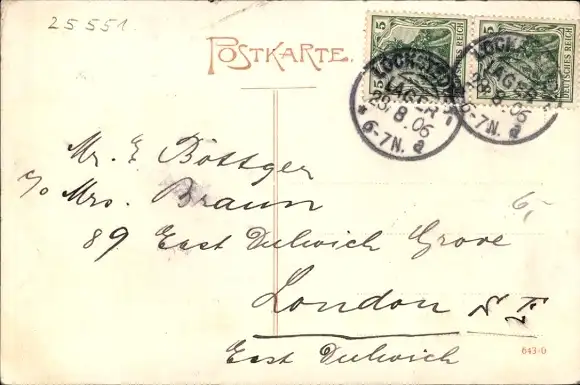 25551.
POSTKARTE.
5 5
DEUTSCHES REICH DEUTSCHES REICH
LOCKSTEDT LAGER
28.8.06
* 6-7N. a
LOCKSTEDT LAGER
28.8.06
* 6-7N. a
Mr. E Böttger
c/o Mrs. Braun
6,-
89 East Dulwich Grove
London S E
East Dulwich
643/0